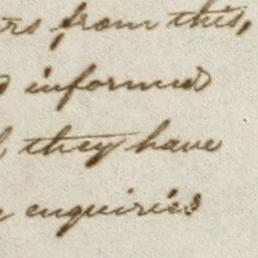 from this,
informed
they have
enquiries